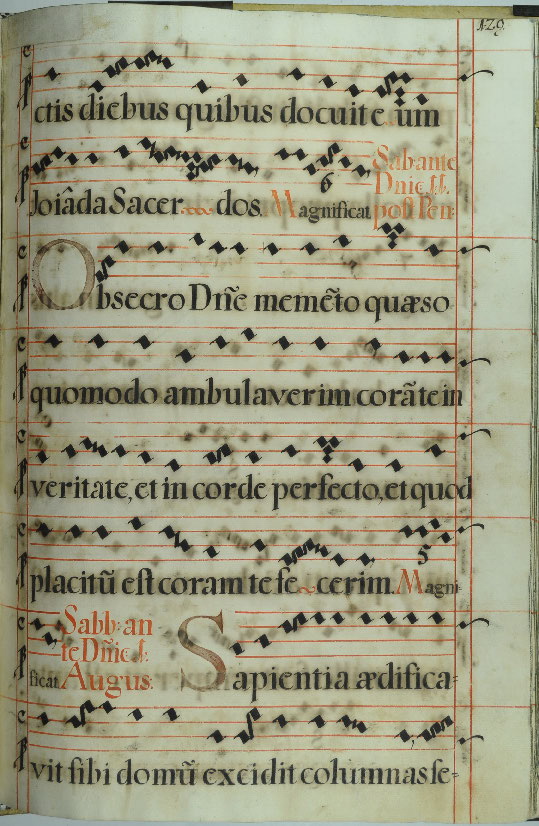 129.
ctis diebus quibus docuit eum
Joiâda Sacerdos. Magnificat 6 Sab. ante
Dñic s.
post Pen-
Obsecro Dñe memẽto quæso
quomodo ambulaverim corã te in
veritate, et in corde perfecto, et quod
placitũ est coram te fecerim. Magni- 5
ficat Sabb: an
te Dñic s.
Augus: Sapientia ædifica-
vit sibi domũ excidit columnas se-